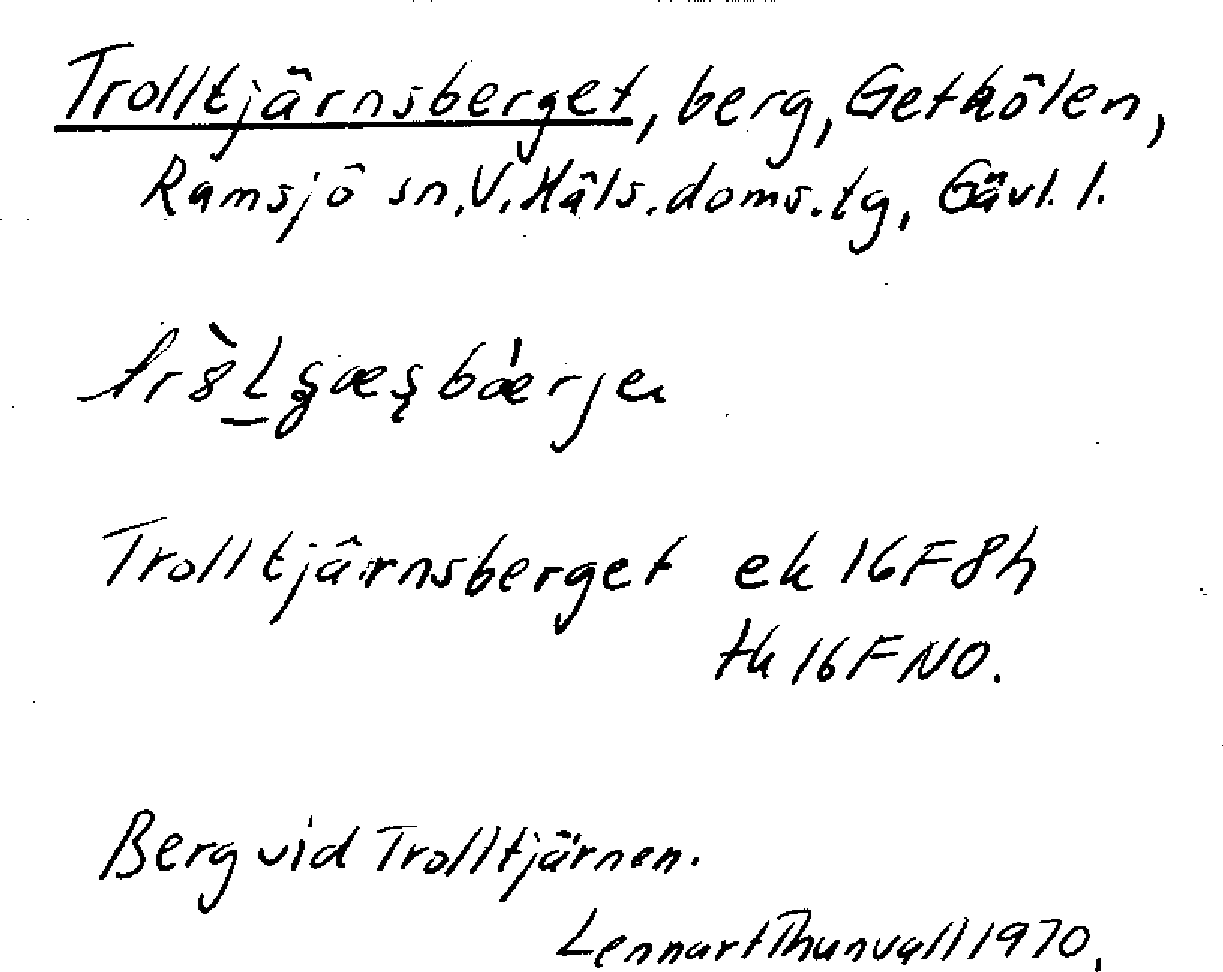 Trolltjärnsberget, berg, Getkölen,
Ramsjö sn, V. Häls. doms. tg, Gävl. l.
Trolltjärnsberget ek 16F8h
tk 16F NO.
Berg vid Trolltjärnen.
Lennart Thunvall 1970.